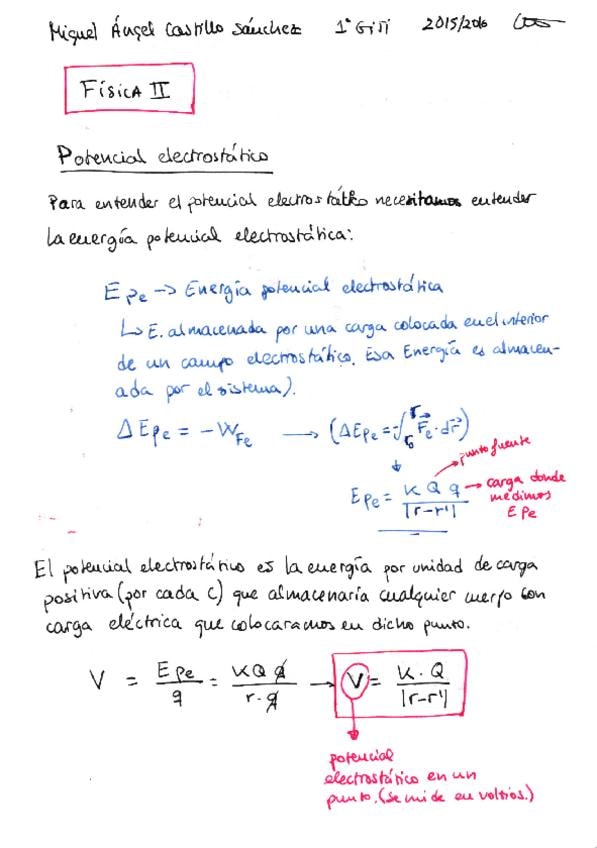 Miguel Ángel Castillo Sánchez 1º GITI 2015/2016
FísicA II
Potencial electrostático
Para entender el potencial electrostático necesitamos entender
la energía potencial electrostática:
Epe -> Energía potencial electrostática
↳ E. almacenada por una carga colocada en el interior
de un campo electrostático. Esa Energía es almacen-
ada por el sistema).
ΔEpe = -WFe → (ΔEpe = -∫r₀^r F⃗e · dr⃗)
Epe = K Q q / |r-r'|
punto fuente
carga donde
medimos
Epe
El potencial electrostático es la energía por unidad de carga
positiva (por cada C) que almacenaría cualquier cuerpo con
carga eléctrica que colocaramos en dicho punto.
V = Epe / q = KQq / r·q → V = K·Q / |r-r'|
potencial
electrostático en un
punto. (Se mide en voltios.)